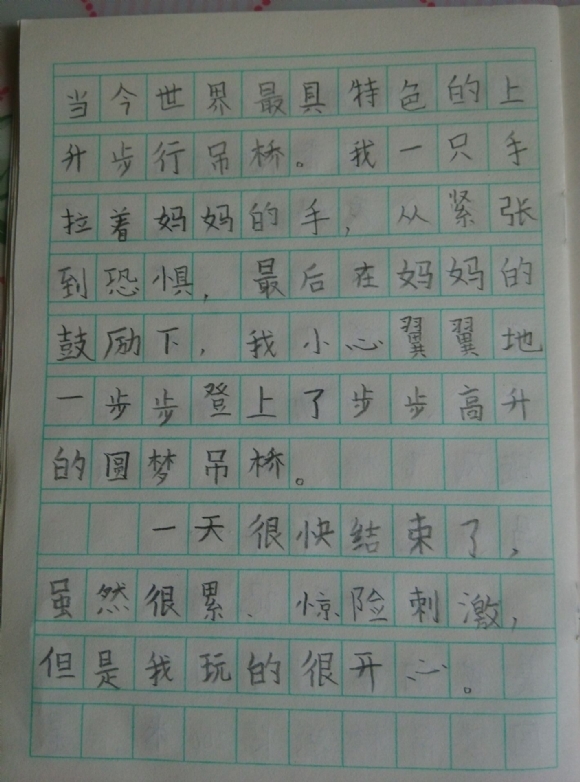 当今世界最具特色的上
升步行吊桥。我一只手
拉着妈妈的手，从紧张
到恐惧，最后在妈妈的
鼓励下，我小心翼翼地
一步步登上了步步高升
的圆梦吊桥。
一天很快结束了，
虽然很累、惊险刺激，
但是我玩的很开心。